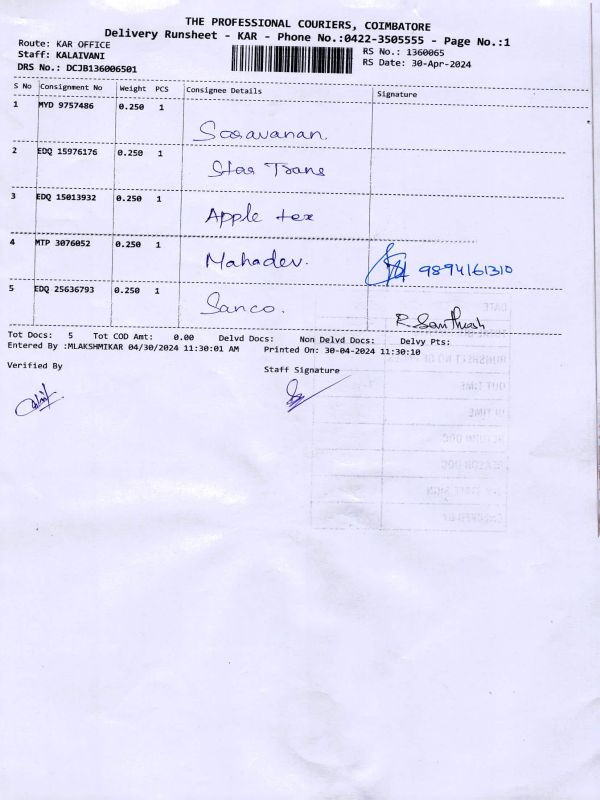 THE PROFESSIONAL COURIERS, COIMBATORE
Delivery Runsheet - KAR - Phone No.:0422-3505555 - Page No.:1
Route: KAR OFFICE
RS No.: 1360065
Staff: KALAIVANI
RS Date: 30-Apr-2024
DRS No.: DCJB136006501
S No Consignment No Weight PCS Consignee Details Signature
1 MYD 9757486 0.250 1
Saravanan.
2 EDQ 15976176 0.250 1
Star Trans
3 EDQ 15013932 0.250 1
Apple tex
4 MTP 3076052 0.250 1
Mahadev. 9894161310
5 EDQ 25636793 0.250 1
Sanco.
R. Santhosh
Tot Docs: 5 Tot COD Amt: 0.00 Delvd Docs: Non Delvd Docs: Delvy Pts:
Entered By :MLAKSHMIKAR 04/30/2024 11:30:01 AM Printed On: 30-04-2024 11:30:10
Verified By
Staff Signature
DATE
OUT TIME
IN TIME